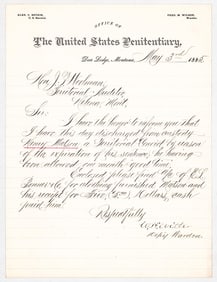 OFFICE OF
The United States Penitentiary,
Deer Lodge, Montana, May 3rd 1885
Hon. J. P. Woolman,
Territorial Auditor
Helena, Mont.
Sir:
I have the honor to inform you that
I have this day discharged from custody
Henry Watson a Territorial Convict by reason
of the expiration of his sentence, he having
been allowed one month good time.
Enclosed please find a/c of E. L.
Bonner & Co for clothing furnished Watson and
his receipt for Five (5.00) Dollars, cash
paid him.
Respectfully
Depty Warden.